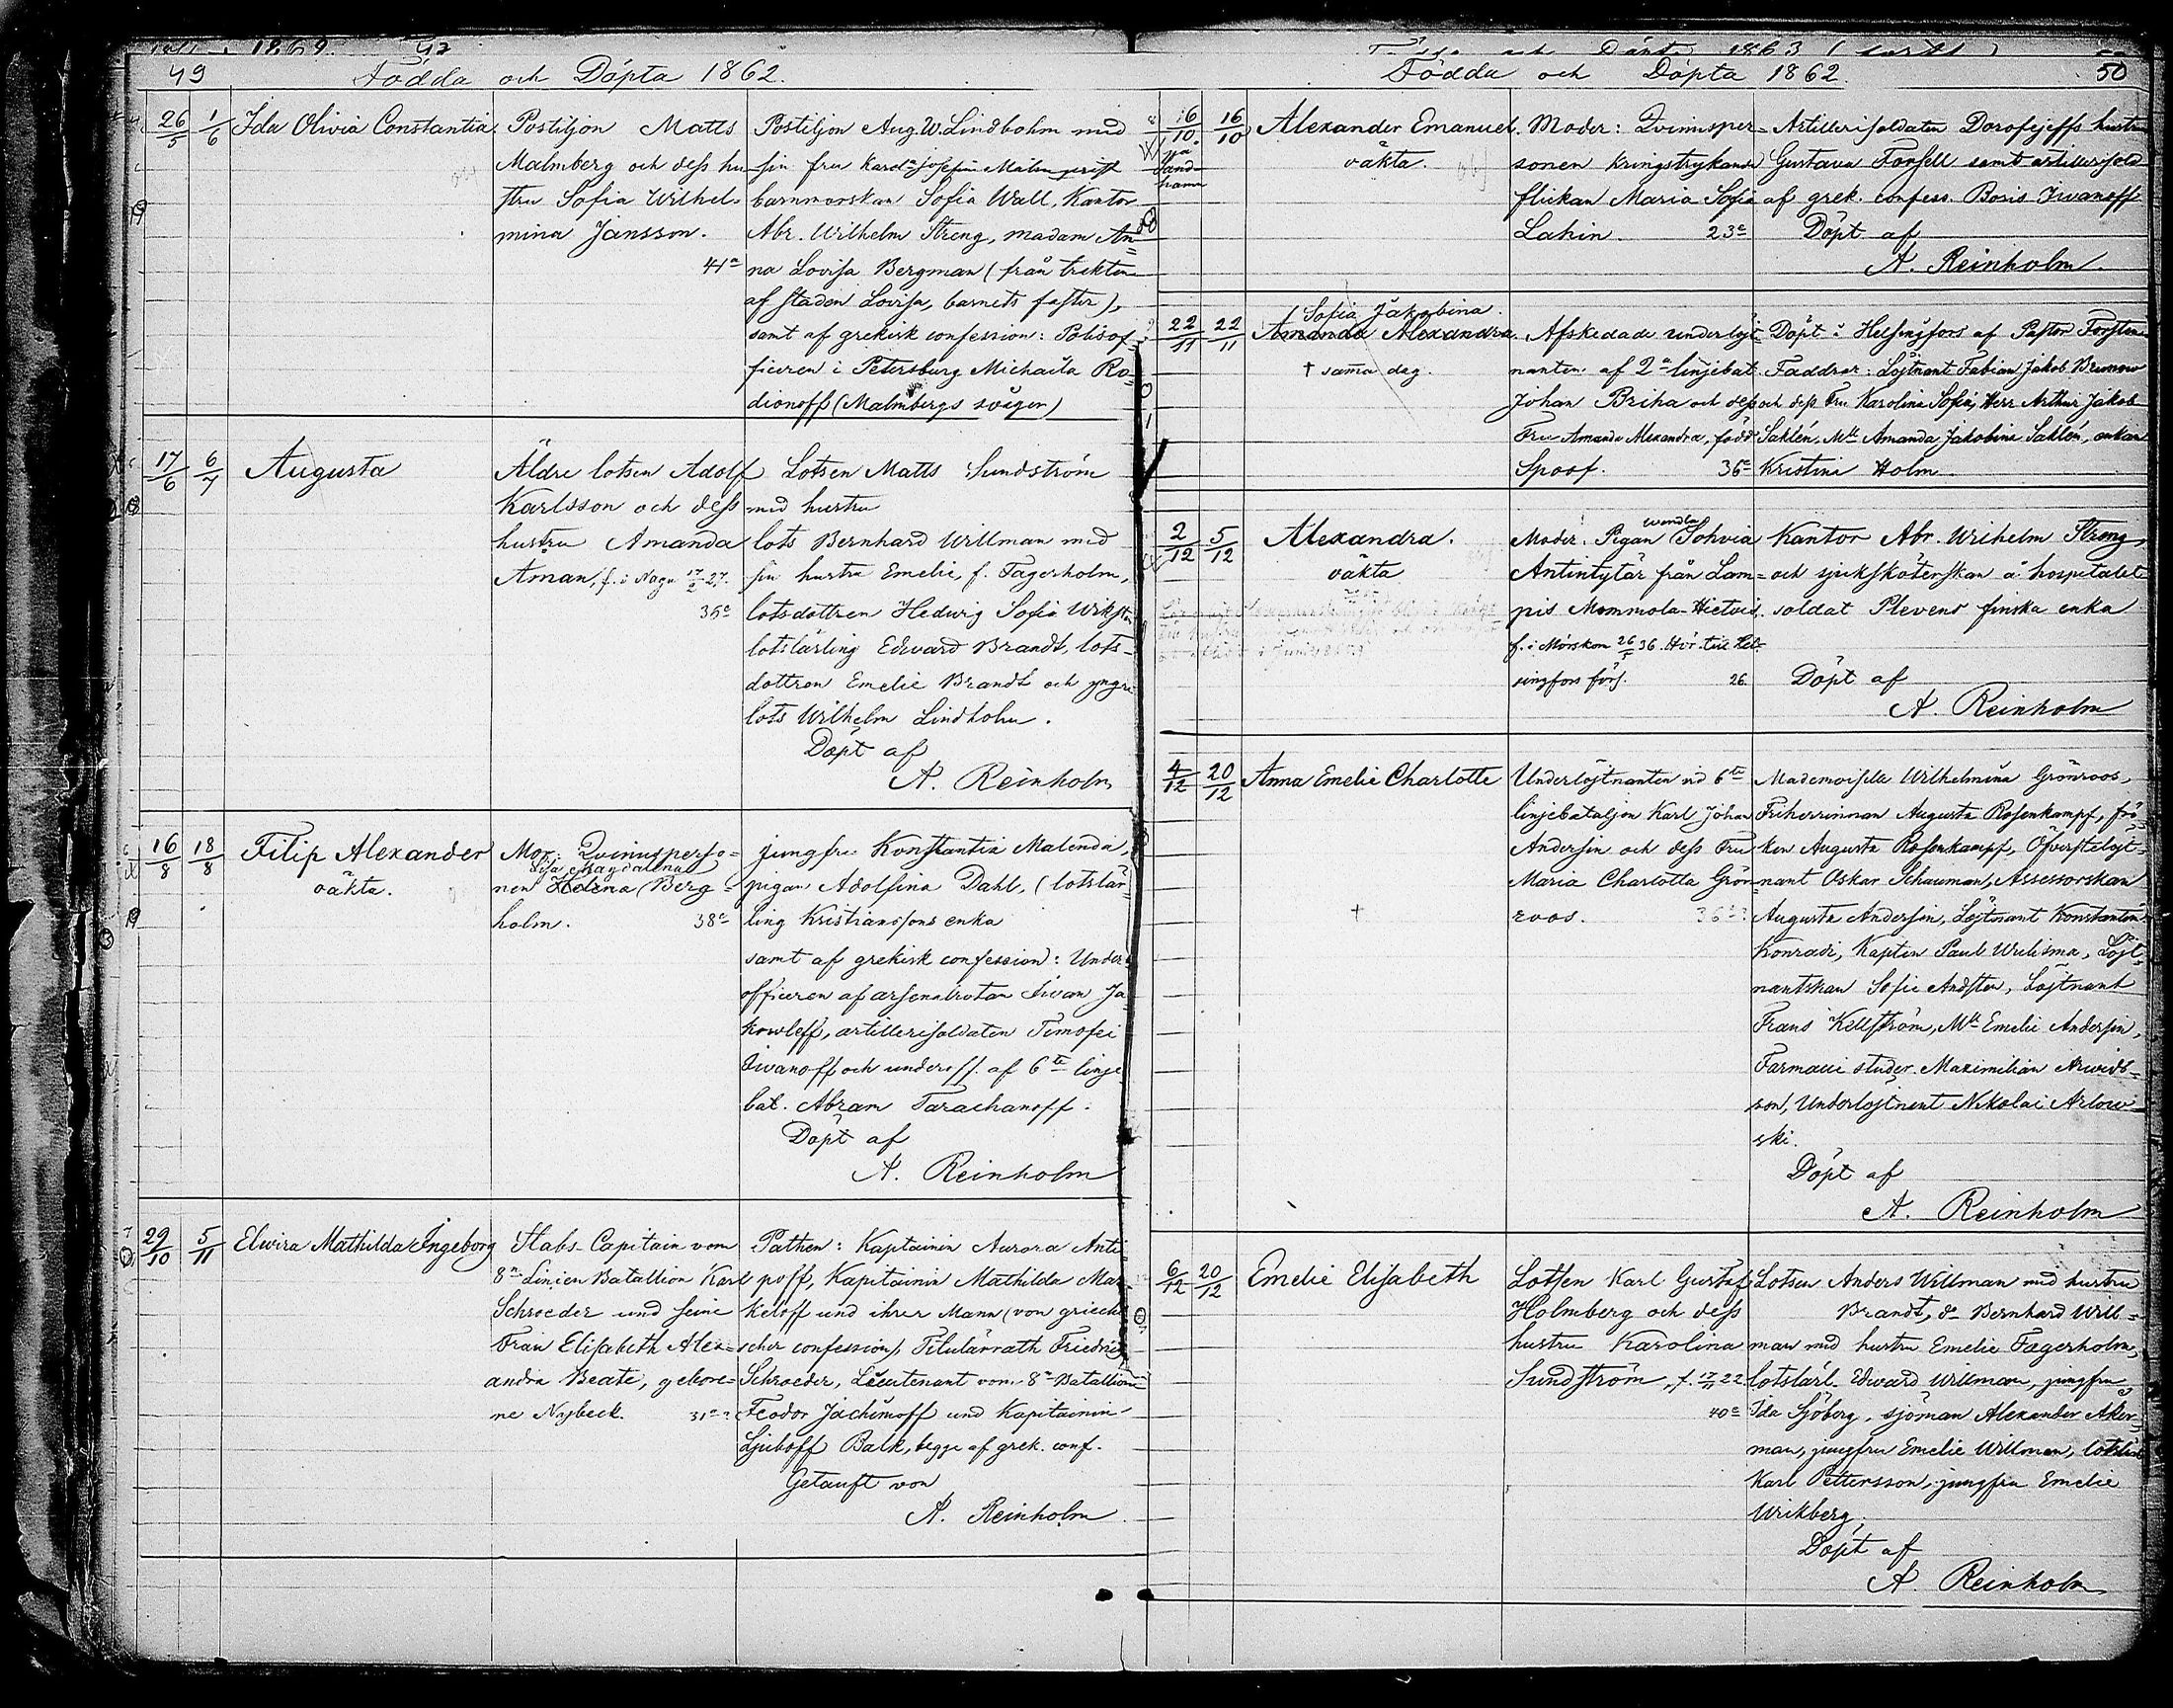 49
Födda och Döpta 1862.
26/5 1/6 Ida Olivia Constantia.
Postiljon Matts
Malmberg och dess hu-
stru Sofia Wilhel-
mina Jansson.
41a
Postiljon Aug. W. Lindbohm med
sin fru Josefin
barnmorskan Sofia Wall, Kantor
Abr. Wilhelm Streng, madam An-
na Lovisa Bergman (från trakten
af staden Lovisa, barnets faster),
samt af grekisk confession: Polisof-
ficeren i Petersburg Michaila Ro-
dionoff (Malmbergs svåger)
17/6 6/7 Augusta
Äldre lotsen Adolf
Karlsson och dess
hustru Amanda
Aman, f. i Nagu 17/2 27.
35a
Lotsen Matts Sundström
med hustru
lots Bernhard Willman med
sin hustru Emelie, f. Fagerholm,
lotsdottren Hedwig Sofia
lotslärling Edward Brandt, lots-
dottren Emelie Brandt och yngre
lots Wilhelm Lindholm.
Döpt af
A. Reinholm
16/8 18/8 Filip Alexander
oäkta.
Mor: Qvinnsperso-
Magdalena
nen Helena Berg-
holm. 38a
jungfru Konstantia Malenda,
pigan Adolfina Dahl, (lotslär-
ling Kristianssons enka
samt af grekisk confession: Under-
officeren af arsenalrotan Iwan Ja-
kowleff, artillerisoldaten Timofei
Iwanoff och underoff. af 6te linje
bat. Abram Tarachanoff.
Döpt af
A. Reinholm
29/10 5/11 Elwira Mathilda Ingeborg
Stabs-Capitain vom
8n Linien Batallion Karl
Schroeder und seine
Frau Elisabeth Alex-
andra Beate, gebore-
ne Nybeck. 31a
Pathen: Kapitainin Aurora Anti-
poff, Kapitainin Mathilda Mar-
keloff und ihrer Mann (von griechi-
scher confession), Titulärrath Friedrich
Schroeder, Lieutenant vom 8n Batallion
Feodor Jachimoff und Kapitainin
Ljuboff Balk, begge af grek. conf.
Getauft von
A. Reinholm
Födda och Döpta 1862. 50
16/10 på Sand-hamn 16/10 Alexander Emanuel.
oäkta.
Moder: Qvinnsper-
sonen kringstrykande
flickan Maria Sofia
Lahin. 23a
Artillerisoldaten Dorofejeffs hustru
Gustava Forsell samt artillerisold.
af grek. confess. Boris Iwanoff
Döpt af
A. Reinholm.
Sofia Jakobina.
22/11 22/11 Amanda Alexandra.
† samma dag.
Afskedade underlöjt-
nanten af 2a linjebat.
Johan Briha och dess
Fru Amanda Alexandra, född
Spoof. 36a
Döpt i Helsingfors af Pastor Forsten
Faddrar: Löjtnant Fabian Jakob Brunow
och dess Fru Karolina Sofia, Herr Arthur Jakob
Sahlén, Mll Amanda Jakobina Sahlén, enkan
Kristina Holm
2/12 5/12 Alexandra.
oäkta
Wendla
Moder: Pigan Sohvia
Antintytär från Lam-
pis Mommola-Hietois.
f. i Mörskom 26/5 36. Hör till Hel-
singfors förs. 26.
Kantor Abr. Wilhelm Streng,
och sjukskötenskan å hospitalet
soldat Plevens finska enka
Döpt af
A. Reinholm
4/12 20/12 Anna Emelie Charlotte
†
Underlöjtnanten vid 6te
linjebataljon Karl Johan
Andersin och dess Fru
Maria Charlotta Grön-
roos. 36
Mademoiselle Wilhelmina Grönroos,
Friherrinnan Augusta Rosenkampf, frö-
ken Augusta Rosenkampf, Öfverstelöjt-
nant Oskar Schauman, Assessorskan
Augusta Andersin, Löjtnant Konstantin
Konradi, Kapten Paul Wulisma, Löjt-
nantskan Sofie Andsten, Löjtnant
Frans Kellström, Mll Emelie Andersin,
Farmacie studer. Maximilian Arwids-
son, Underlöjtnant Nikolai Arlow-
ski.
Döpt af
A. Reinholm
6/12 20/12 Emelie Elisabeth
Lotsen Karl Gustaf
Holmberg och dess
hustru Karolina
Sundström, f. 17/11 22
40a
Lotsen Anders Willman med hustru
Brandt, do Bernhard Will-
man med hustru Emelie Fagerholm,
lotslärl. Edward Willman, jungfru
Ida Sjöberg, sjöman Alexander Åker-
man, jungfru Emelie Willman, lotslärl.
Karl Pettersson, jungfru Emelie
Wrikberg.
Döpt af
A. Reinholm